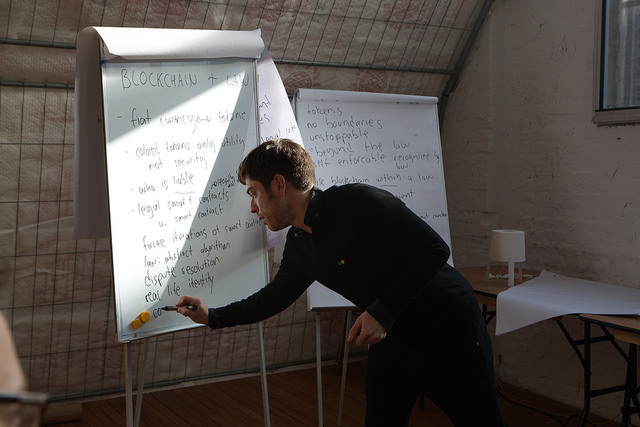 BLOCKCHAIN + LAW
- fiat currency
- colored tokens only utility
not security
- who is liable
- legal smart contracts
smart contract
forced iterations of smart
law: abstract algorithm
dispute resolution
real life identity
co
tokens
no boundaries
unstoppable
"beyond the law
self enforceable recognized by
law
blockchain within a law